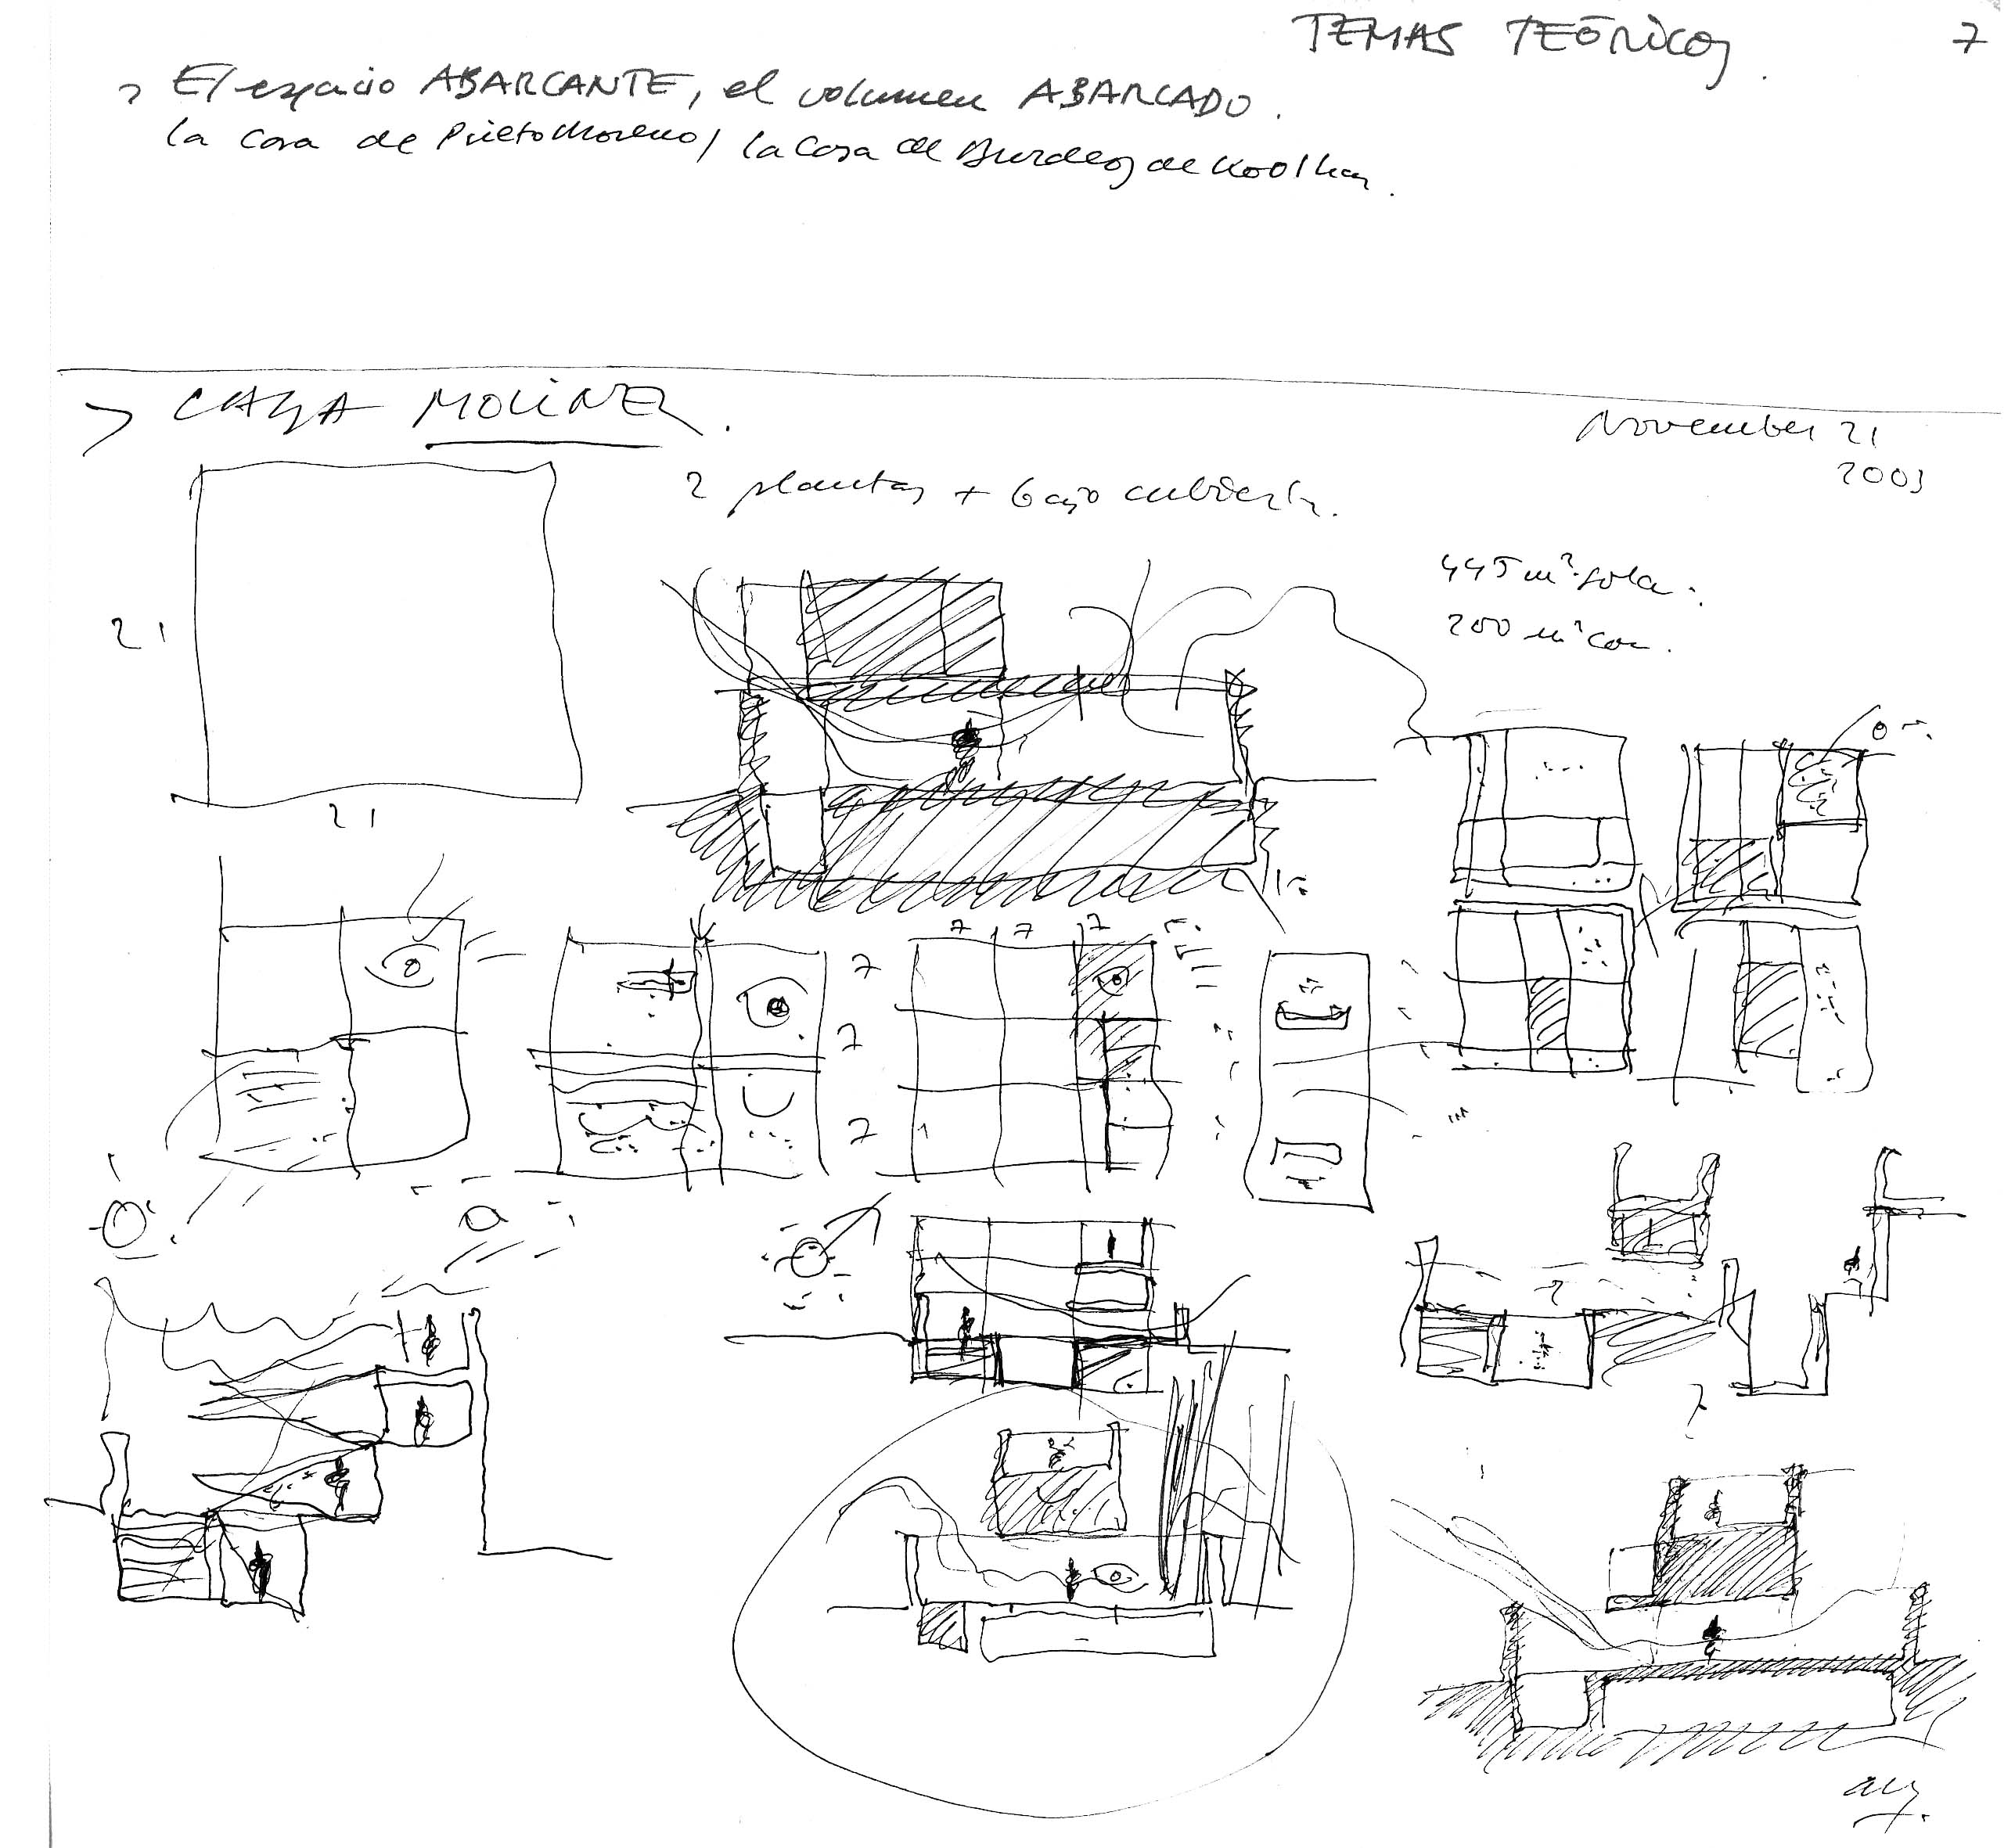 TEMAS TEÓRICOS. 7
> El espacio ABARCANTE, el volumen ABARCADO.
la casa de Prieto Moreno / la casa de Burdeos de Koolhas.
> CASA MOLINER.
November 21
2003
2 plantas + bajo cubierta.
445 m² sola.
200 m² con.
21
21
7 7 7
7
7
7